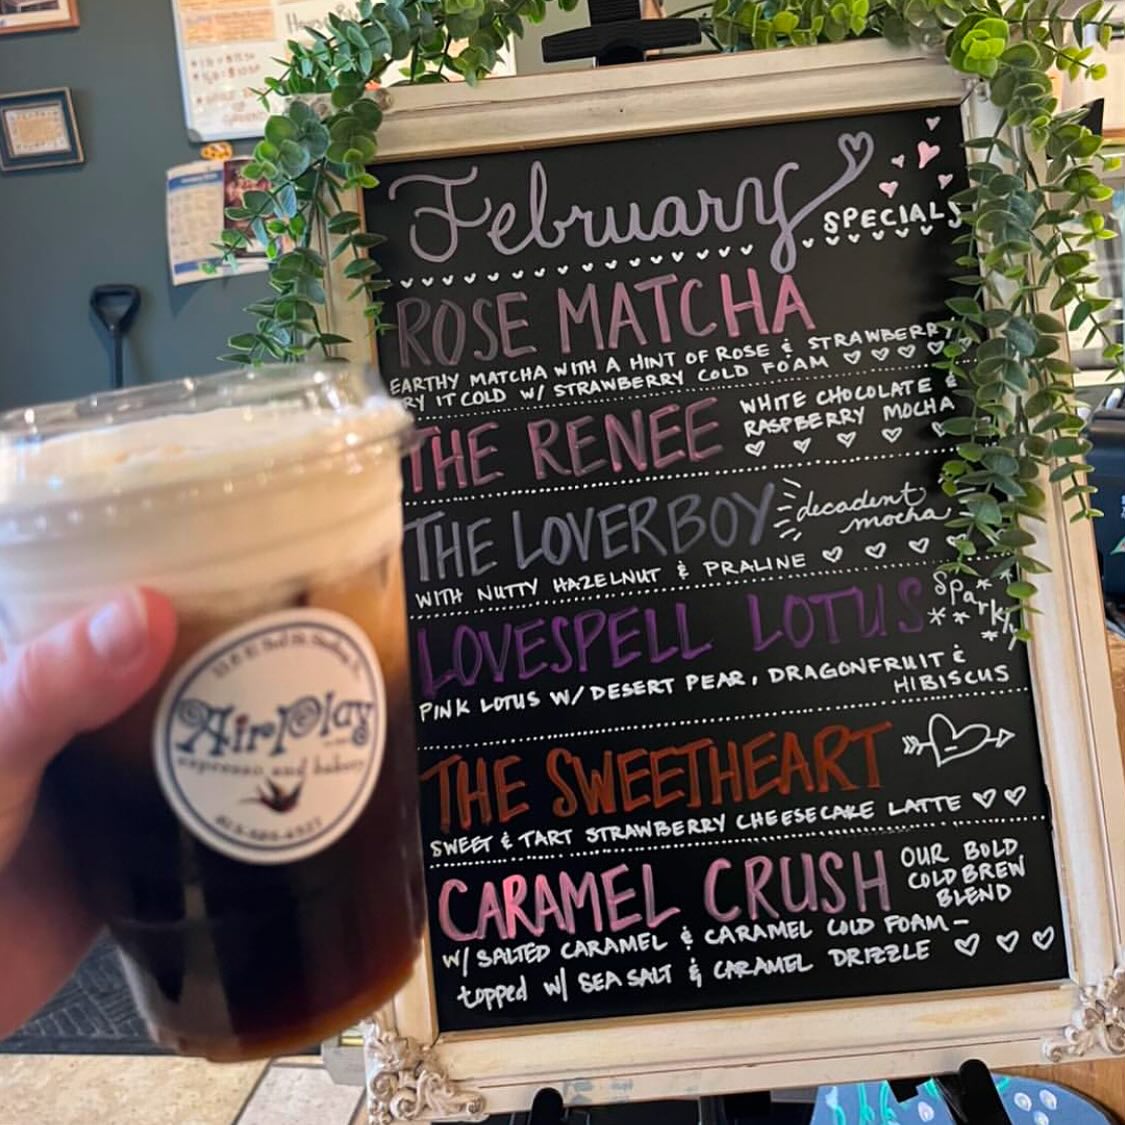 February
SPECIALS
ROSE MATCHA
EARTHY MATCHA WITH A HINT OF ROSE & STRAWBERRY
RY IT COLD W/ STRAWBERRY COLD FOAM
THE RENEE
WHITE CHOCOLATE &
RASPBERRY MOCHA
THE LOVERBOY
decadent
mocha
WITH NUTTY HAZELNUT & PRALINE
LOVESPELL LOTUS
Spark
PINK LOTUS W/ DESERT PEAR, DRAGONFRUIT &
HIBISCUS
THE SWEETHEART
SWEET & TART STRAWBERRY CHEESECAKE LATTE
CARAMEL CRUSH
OUR BOLD
COLD BREW
BLEND
W/ SALTED CARAMEL & CARAMEL COLD FOAM –
topped w/ SEA SALT & CARAMEL DRIZZLE
AirPlay
espresso and bakery